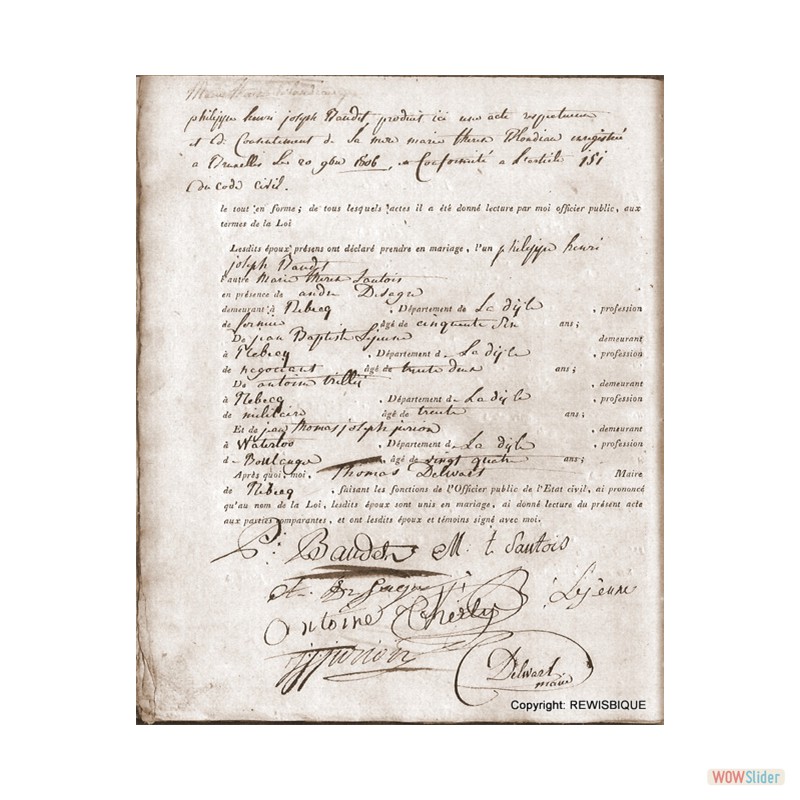 philippe henri joseph Baudet, produit ici une acte respectueux
et de Consentement de sa mere marie therese Blondiau enregistré
a Bruxelles le 20 9bre 1806, en Conformité a l'article 151
du code civil.
le tout en forme; de tous lesquels actes il a été donné lecture par moi officier public, aux
termes de la Loi
Lesdits époux présens ont déclaré prendre en mariage, l'un philippe henri
joseph Baudet
l'autre Marie therese Sautois
en présence de andre Desagre
demeurant à Rebecq , Département de La dijle , profession
de fermier , âgé de cinquante six ans;
De jean Baptiste Lejeune demeurant
à Rebecq , Département d La dyle , profession
de negociant âgé de trente deux ans;
De antoine , demeurant
à Rebecq , Département d La dyle , profession
de militaire âgé de trente ans;
Et de jean thomas joseph jurion , demeurant
à Waterloo , Département d La dyle , profession
d Boulenger , âgé de vingt quatre ans;
Après quoi moi, Thomas Delwart Maire
de Rebecq , faisant les fonctions de l'Officier public de l'Etat civil, ai prononcé
qu'au nom de la Loi, lesdits époux sont unis en mariage, ai donné lecture du présent acte
aux parties comparantes, et ont lesdits époux et témoins signé avec moi.
P: Baudet M. t Sautois
Lejeune
Antoine
jjjurion
Delwart
maire
Copyright: REWISBIQUE
WOWSlider